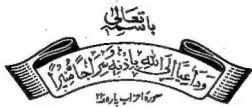 باسمہ تعالیٰ
وَدَاعِيًا إِلَى اللّٰهِ بِإِذْنِهٖ وَسِرَاجًا مُّنِيرًا
سورۃ احزاب پارہ ۲۲